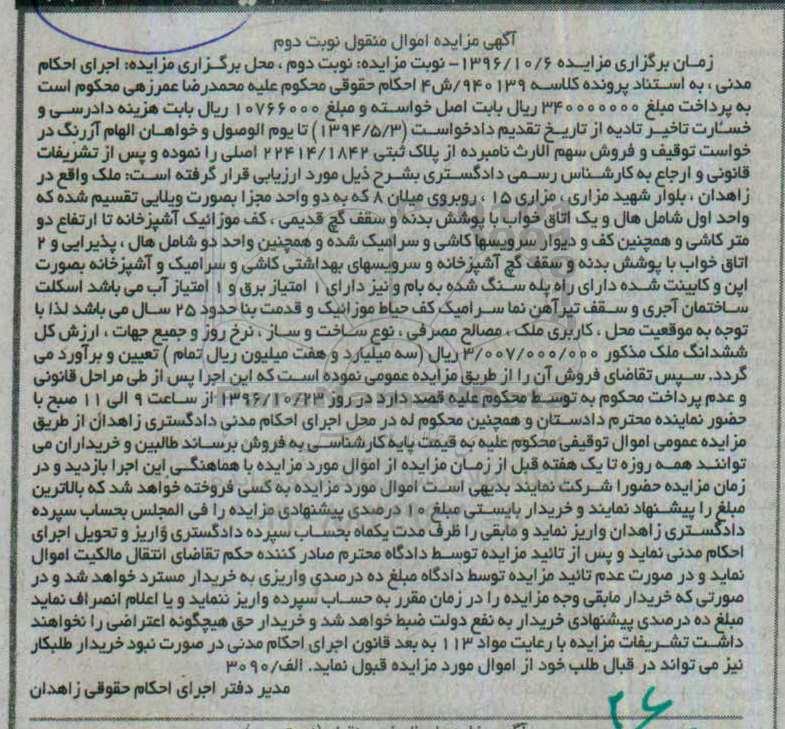 آگهی مزایده اموال منقول نوبت دوم
زمـان برگزاری مزایـده ۱۳۹۶/۱۰/۶- نوبت مزایده: نوبت دوم ، محل برگـزاری مزایده: اجرای احکام
مدنی ، به اسـتناد پرونده کلاسه ۹۴۰۱۳۹/ش۴ احکام حقوقی محکوم علیه محمدرضا عمرزهی محکوم است
به پرداخت مبلغ ۳۴۰۰۰۰۰۰۰ ریال بابت اصل خواسـته و مبلغ ۱۰۷۶۶۰۰۰ ریال بابت هزینه دادرسـی و
خسـارت تاخیـر تادیه از تاریـخ تقدیم دادخواسـت (۱۳۹۴/۵/۳) تا یوم الوصول و خواهـان الهام آژرنگ در
خواست توقیف و فروش سهم الارث نامبرده از پلاک ثبتی ۲۲۴۱۴/۱۸۴۲ اصلی را نموده و پس از تشریفات
قانونی و ارجاع به کارشـناس رسمی دادگسـتری بشرح ذیل مورد ارزیابی قرار گرفته اسـت: ملک واقع در
زاهدان ، بلوار شهید مزاری ، مزاری ۱۵ ، روبروی میلان ۸ که به دو واحد مجزا بصورت ویلایی تقسیم شده که
واحد اول شامل هال و یک اتاق خواب با پوشش بدنه و سقف گچ قدیمی ، کف موزائیک آشپزخانه تا ارتفاع دو
متر کاشی و همچنین کف و دیوار سرویسها کاشی و سرامیک شده و همچنین واحد دو شامل هال ، پذیرایی و ۲
اتاق خواب با پوشش بدنه و سقف گچ آشپزخانه و سرویسهای بهداشتی کاشی و سرامیک و آشپزخانه بصورت
اپن و کابینت شده دارای راه پله سـنگ شده به بام و نیز دارای ۱ امتیاز برق و ۱ امتیاز آب می باشد اسکلت
ساختمان آجری و سـقف تیرآهن نما سـرامیک کف حیاط موزائیک و قدمت بنا حدود ۲۵ سـال می باشد لذا با
توجه به موقعیت محل ، کاربری ملک ، مصالح مصرفی ، نوع ساخت و ساز ، نرخ روز و جمیع جهات ، ارزش کل
ششدانگ ملک مذکور ۳/۰۰۷/۰۰۰/۰۰۰ ریال (سه میلیارد و هفت میلیون ریال تمام ) تعیین و برآورد می
گردد. سـپس تقاضای فروش آن را از طریق مزایده عمومی نموده اسـت که این اجرا پس از طی مراحل قانونی
و عدم پرداخت محکوم به توسـط محکوم علیه قصد دارد در روز ۱۳۹۶/۱۰/۲۳ از ساعت ۹ الی ۱۱ صبح با
حضور نماینده محترم دادسـتان و همچنین محکوم له در محل اجرای احکام مدنی دادگستری زاهدان از طریق
مزایده عمومی اموال توقیفی محکوم علیه به قیمت پایه کارشناسـی به فروش برسـاند طالبین و خریداران می
تواننـد همـه روزه تا یک هفته قبل از زمـان مزایده از اموال مورد مزایده با هماهنگـی این اجرا بازدید و در
زمان مزایده حضورا شـرکت نمایند بدیهی اسـت اموال مورد مزایده به کسی فروخته خواهد شد که بالاترین
مبلغ را پیشـنهاد نمایند و خریدار بایستی مبلغ ۱۰ درصدی پیشنهادی مزایده را فی المجلس بحساب سپرده
دادگسـتری زاهدان واریز نماید و مابقی را ظرف مدت یکماه بحسـاب سپرده دادگستری واریز و تحویل اجرای
احکام مدنی نماید و پس از تائید مزایده توسـط دادگاه محترم صادر کننده حکم تقاضای انتقال مالکیت اموال
نماید و در صورت عدم تائید مزایده توسط دادگاه مبلغ ده درصدی واریزی به خریدار مسترد خواهد شد و در
صورتی که خریدار مابقی وجه مزایده را در زمان مقرر به حسـاب سپرده واریز ننماید و یا اعلام انصراف نماید
مبلغ ده درصدی پیشنهادی خریدار به نفع دولت ضبط خواهد شد و خریدار حق هیچگونه اعتراضی را نخواهند
داشـت تشـریفات مزایده با رعایت مواد ۱۱۳ به بعد قانون اجرای احکام مدنی در صورت نبود خریدار طلبکار
نیز می تواند در قبال طلب خود از اموال مورد مزایده قبول نماید. الف/۳۰۹۰
مدیر دفتر اجرای احکام حقوقی زاهدان
۲۶